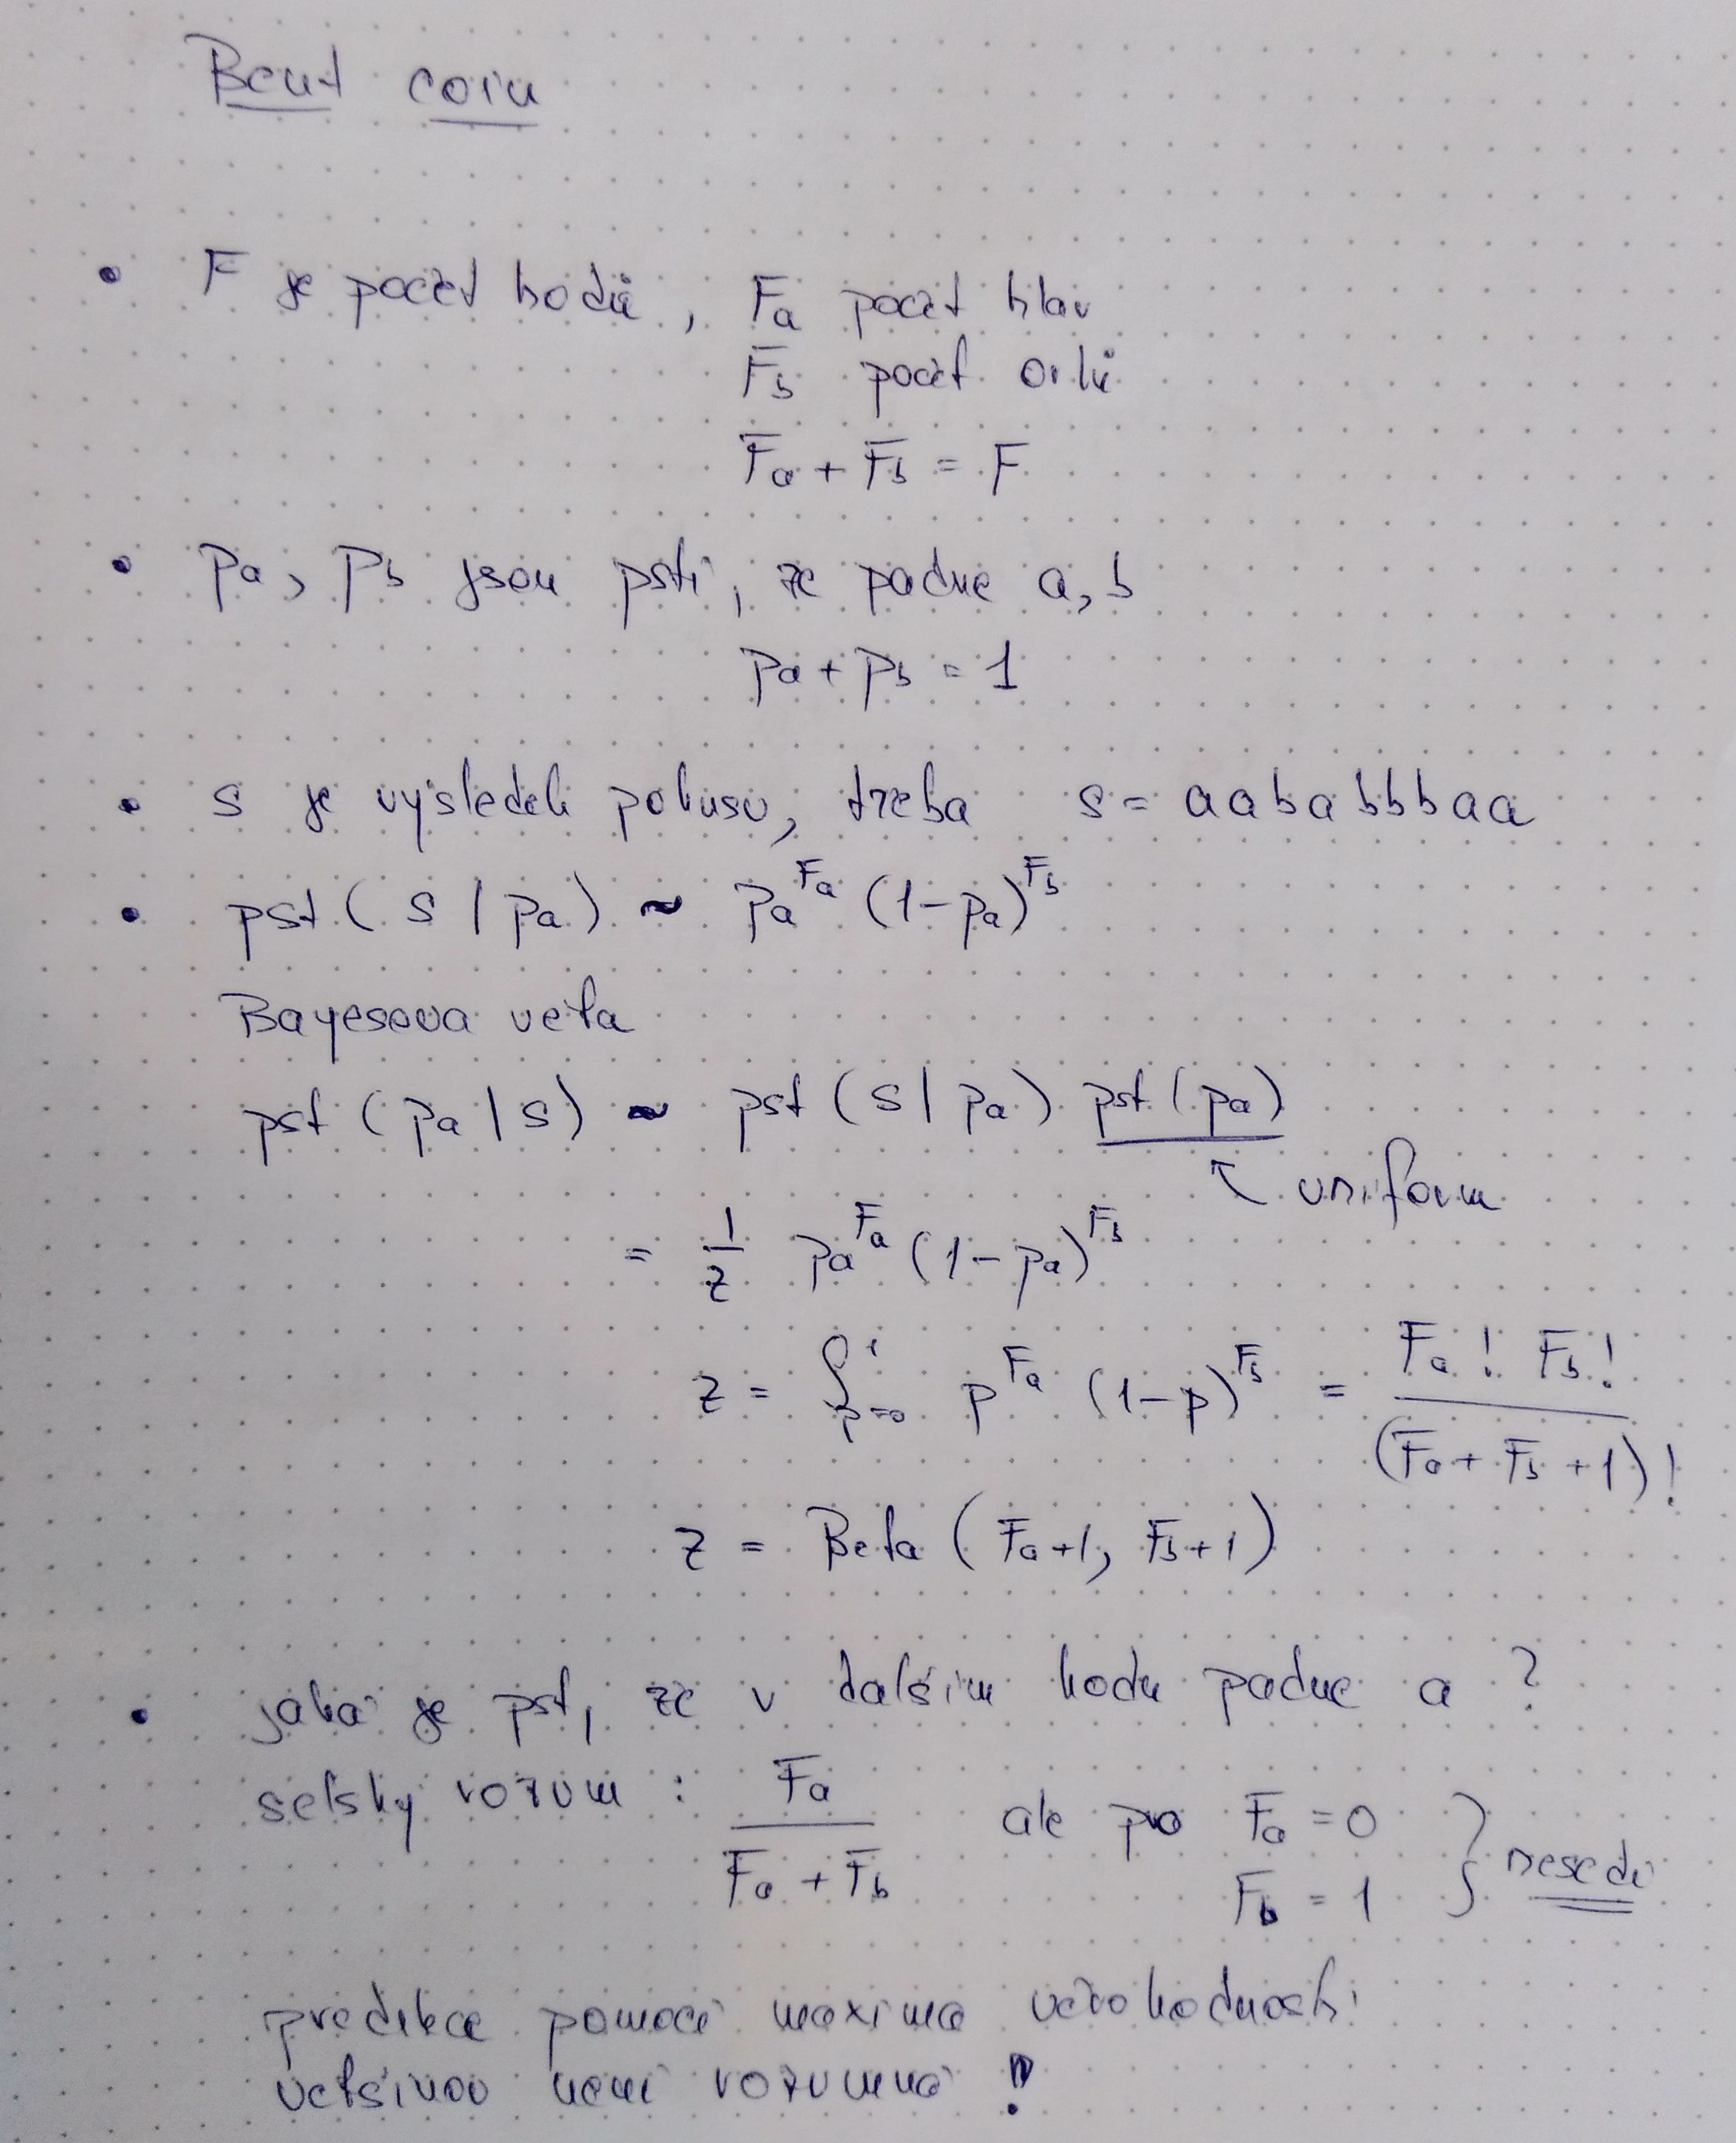 Bent coin
• F je počet hodů, Fa počet hlav
Fb počet orlů
Fa + Fb = F
• pa, pb jsou psti, že padne a, b
pa + pb = 1
• s je výsledek pokusu, třeba s = aababbbaa
• pst(s | pa) ~ pa^Fa (1-pa)^Fb
Bayesova věta
pst(pa | s) ~ pst(s | pa) pst(pa)
↖ uniform
= 1/z pa^Fa (1-pa)^Fb
z = ∫_{p=0}^1 p^Fa (1-p)^Fb = Fa! Fb! / (Fa + Fb + 1)!
z = Beta (Fa+1, Fb+1)
• jaká je pst, že v dalším hodu padne a ?
selský rozum : Fa / (Fa + Fb) ale pro Fa = 0 } nesedí
Fb = 1
predikce pomocí maxima věrohodnosti
většinou není rozumná !